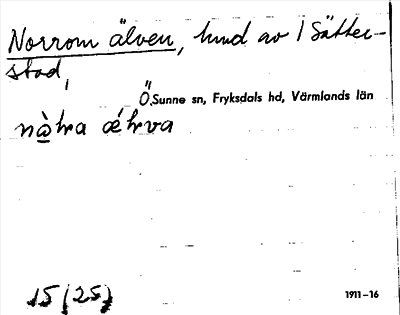 Norrom älven, hmd av 1 Sätter-
stad,
Ö. Sunne sn, Fryksdals hd, Värmlands län
nà̠hra ǽhrva
15 (25)
1911-16